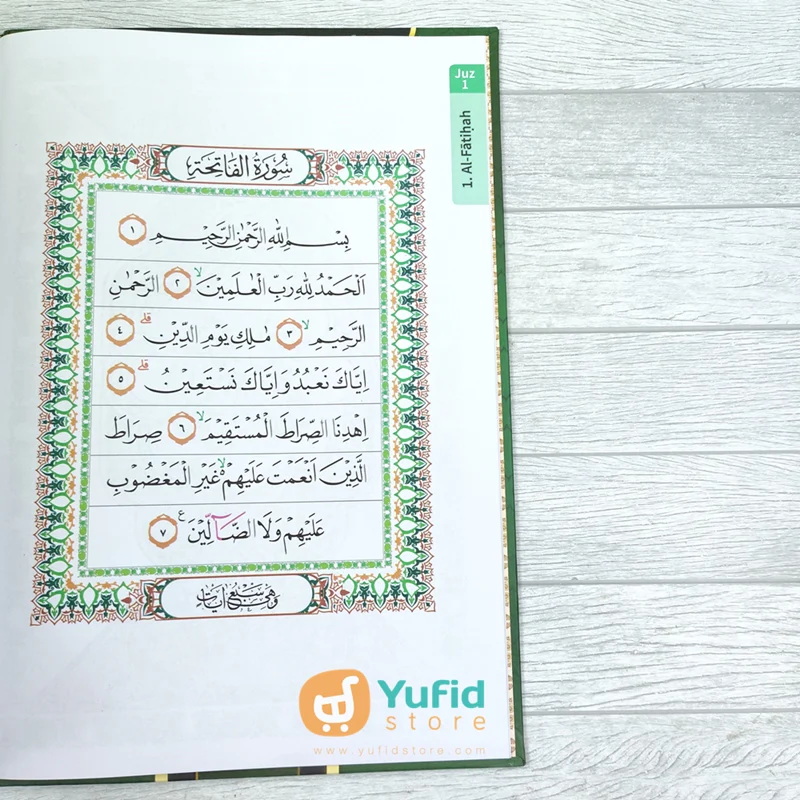 Juz
1
1. Al-Fātiḥah
سُوْرَةُ الْفَاتِحَةِ
بِسْمِ اللّٰهِ الرَّحْمٰنِ الرَّحِيْمِ ١
اَلْحَمْدُ لِلّٰهِ رَبِّ الْعٰلَمِيْنَۙ ٢ الرَّحْمٰنِ
الرَّحِيْمِۙ ٣ مٰلِكِ يَوْمِ الدِّيْنِۗ ٤
اِيَّاكَ نَعْبُدُ وَاِيَّاكَ نَسْتَعِيْنُۗ ٥
اِهْدِنَا الصِّرَاطَ الْمُسْتَقِيْمَۙ ٦ صِرَاطَ
الَّذِيْنَ اَنْعَمْتَ عَلَيْهِمْ ەۙ غَيْرِ الْمَغْضُوْبِ
عَلَيْهِمْ وَلَا الضَّاۤلِّيْنَ ࣖ ٧
وَهِيَ سَبْعُ اٰيَاتٍ
Yufid
store
www.yufidstore.com